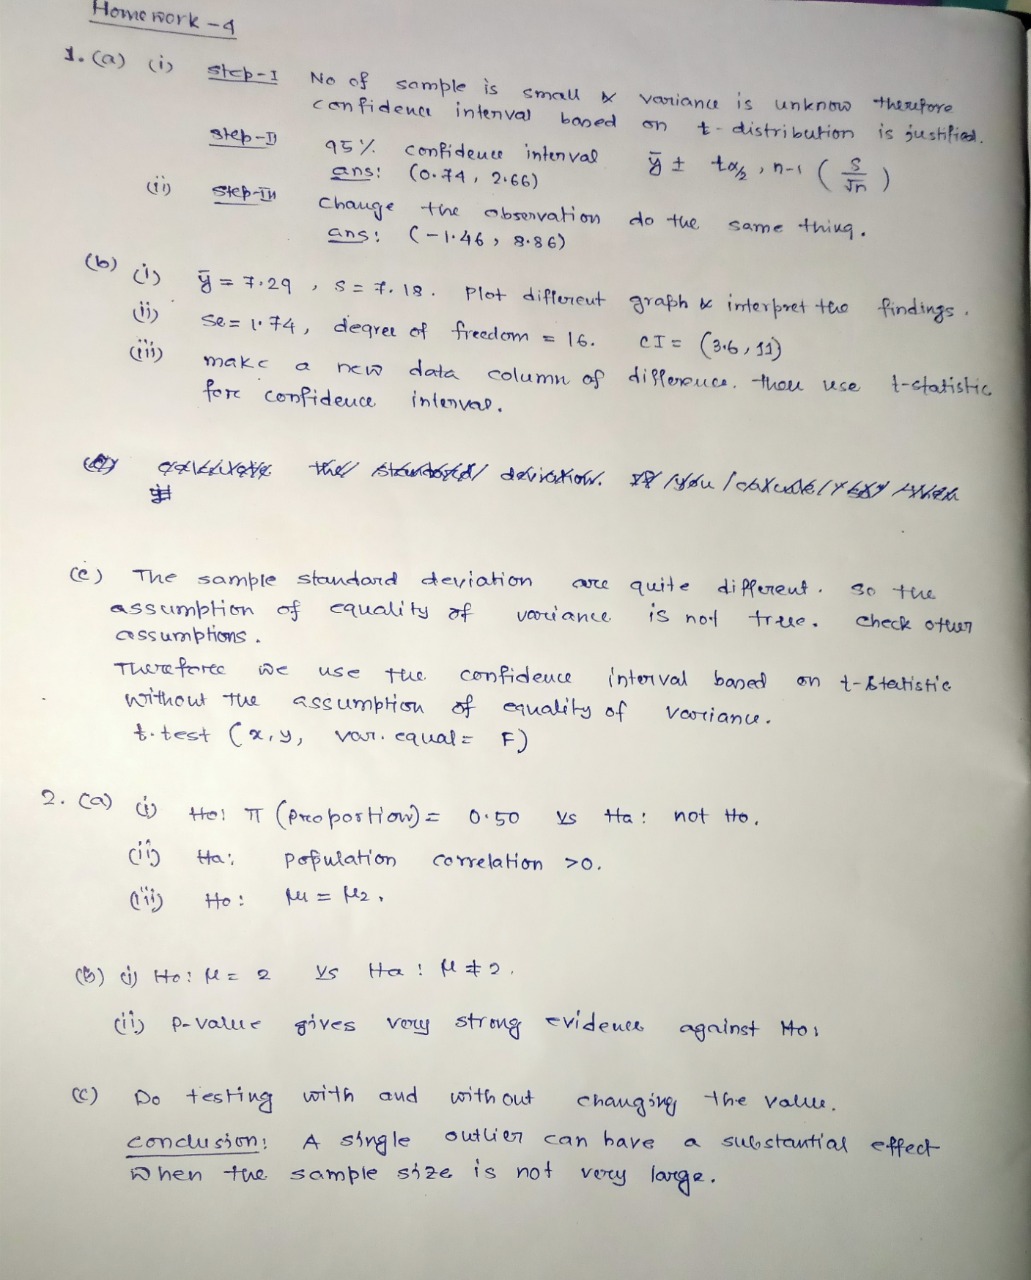 Homework - 4
1. (a) (i) Step-I No of sample is small & variance is unknow therefore
confidence interval based on t-distribution is justified.
Step-II 95% confidence interval ȳ ± tα/2, n-1 (S/√n)
ans: (0.74, 2.66)
(ii) Step-III Change the observation do the same thing.
ans: (-1.46, 8.86)
(b) (i) ȳ = 7.29, S = 7.18. Plot different graph & interpret the findings.
(ii) Se = 1.74, degree of freedom = 16. CI = (3.6, 11)
(iii) make a new data column of difference. then use t-statistic
for confidence interval.
(c) The sample standard deviation are quite different. So the
assumption of equality of variance is not true. check other
assumptions.
Therefore we use the confidence interval based on t-statistic
without the assumption of equality of variance.
t.test (x, y, var.equal = F)
2. (a) (i) Ho: π (proportion) = 0.50 vs Ha: not Ho.
(ii) Ha: population correlation >0.
(iii) Ho: μ1 = μ2,
(b) (i) Ho: μ = 2 vs Ha: μ ≠ 2.
(ii) P-value gives very strong evidence against Ho:
(c) Do testing with and without changing the value.
conclusion: A single outlier can have a substantial effect
when the sample size is not very large.